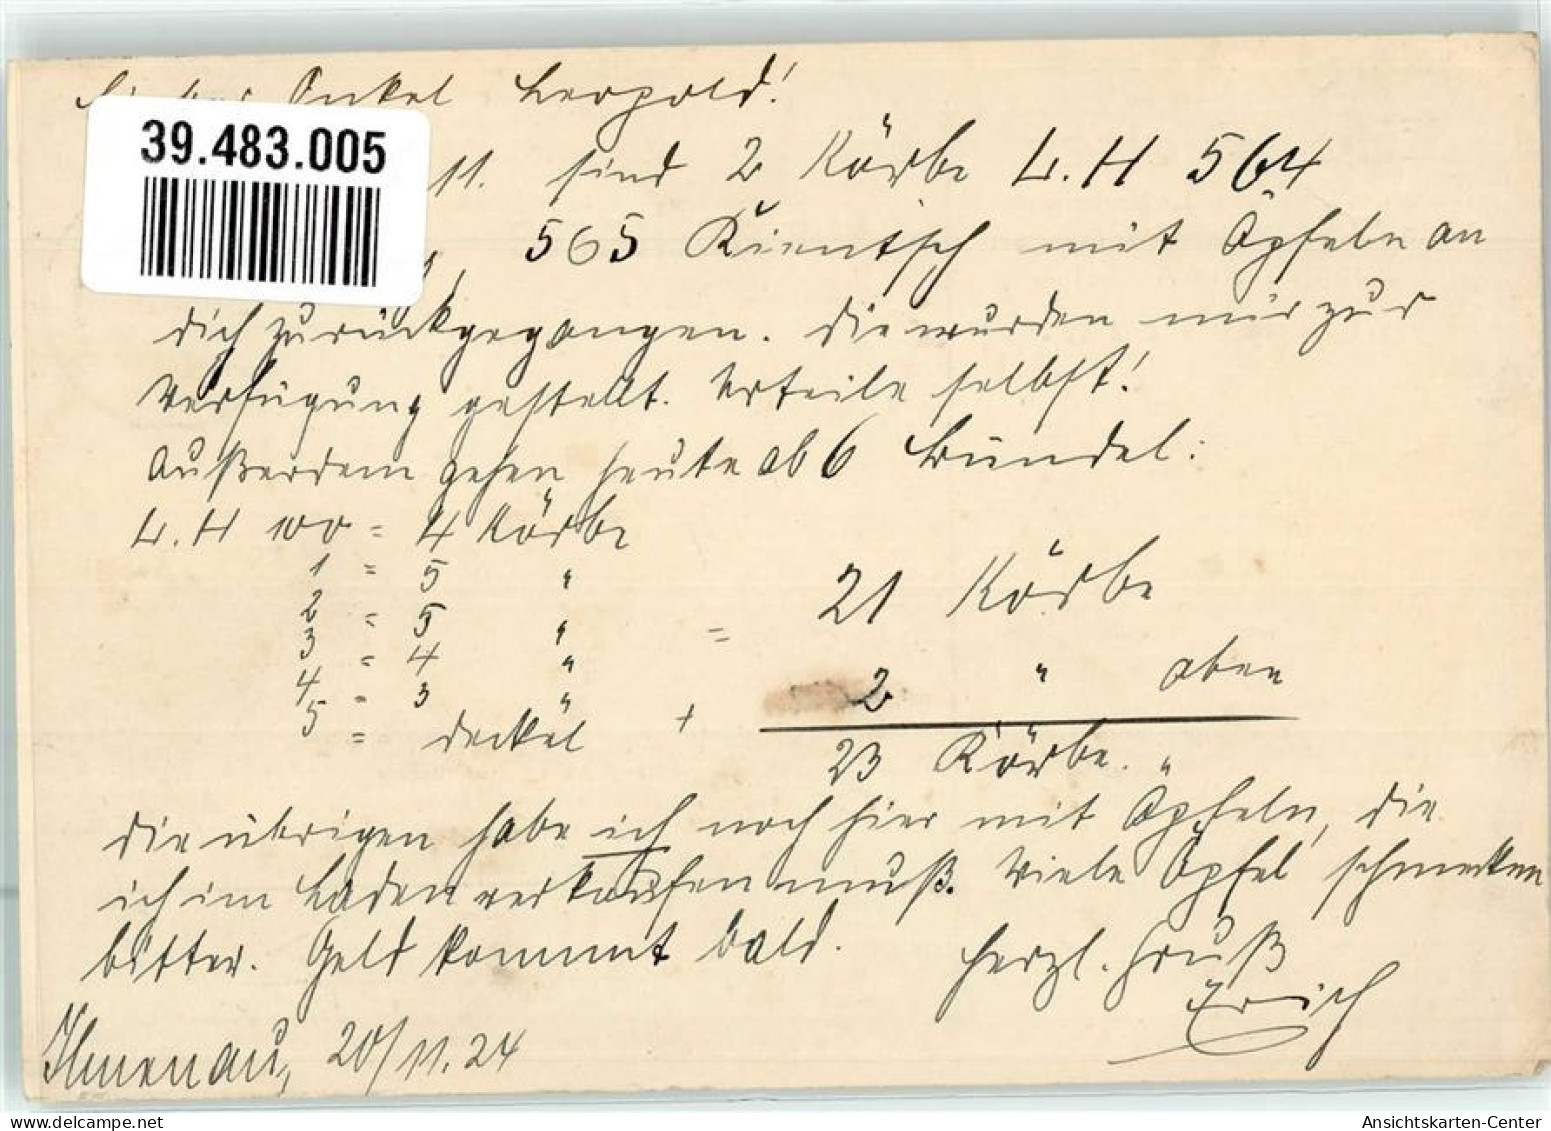 Lieber Onkel Leopold!
39.483.005
11. sind 2 Körbe L.H 564
565 Kientsch mit Äpfeln an
dich zurückgegangen. Die wurden mir zur
Verfügung gestellt. Urteile selbst!
Außerdem gehen heute ab 6 Bündel:
L.H 100 = 4 Körbe
1 = 5 "
2 = 5 " = 21 Körbe
3 = 4 "
4 = 3 " 2 " oben
5 = Deckel +
23 Körbe.
Die übrigen habe ich noch hier mit Äpfeln, die
ich im Laden verkaufen muß. Viele Äpfel schmecken
bitter. Geld kommt bald. Herzl. Gruß
Erich
Ilmenau, 20/11.24
www.delcampe.net
Ansichtskarten-Center